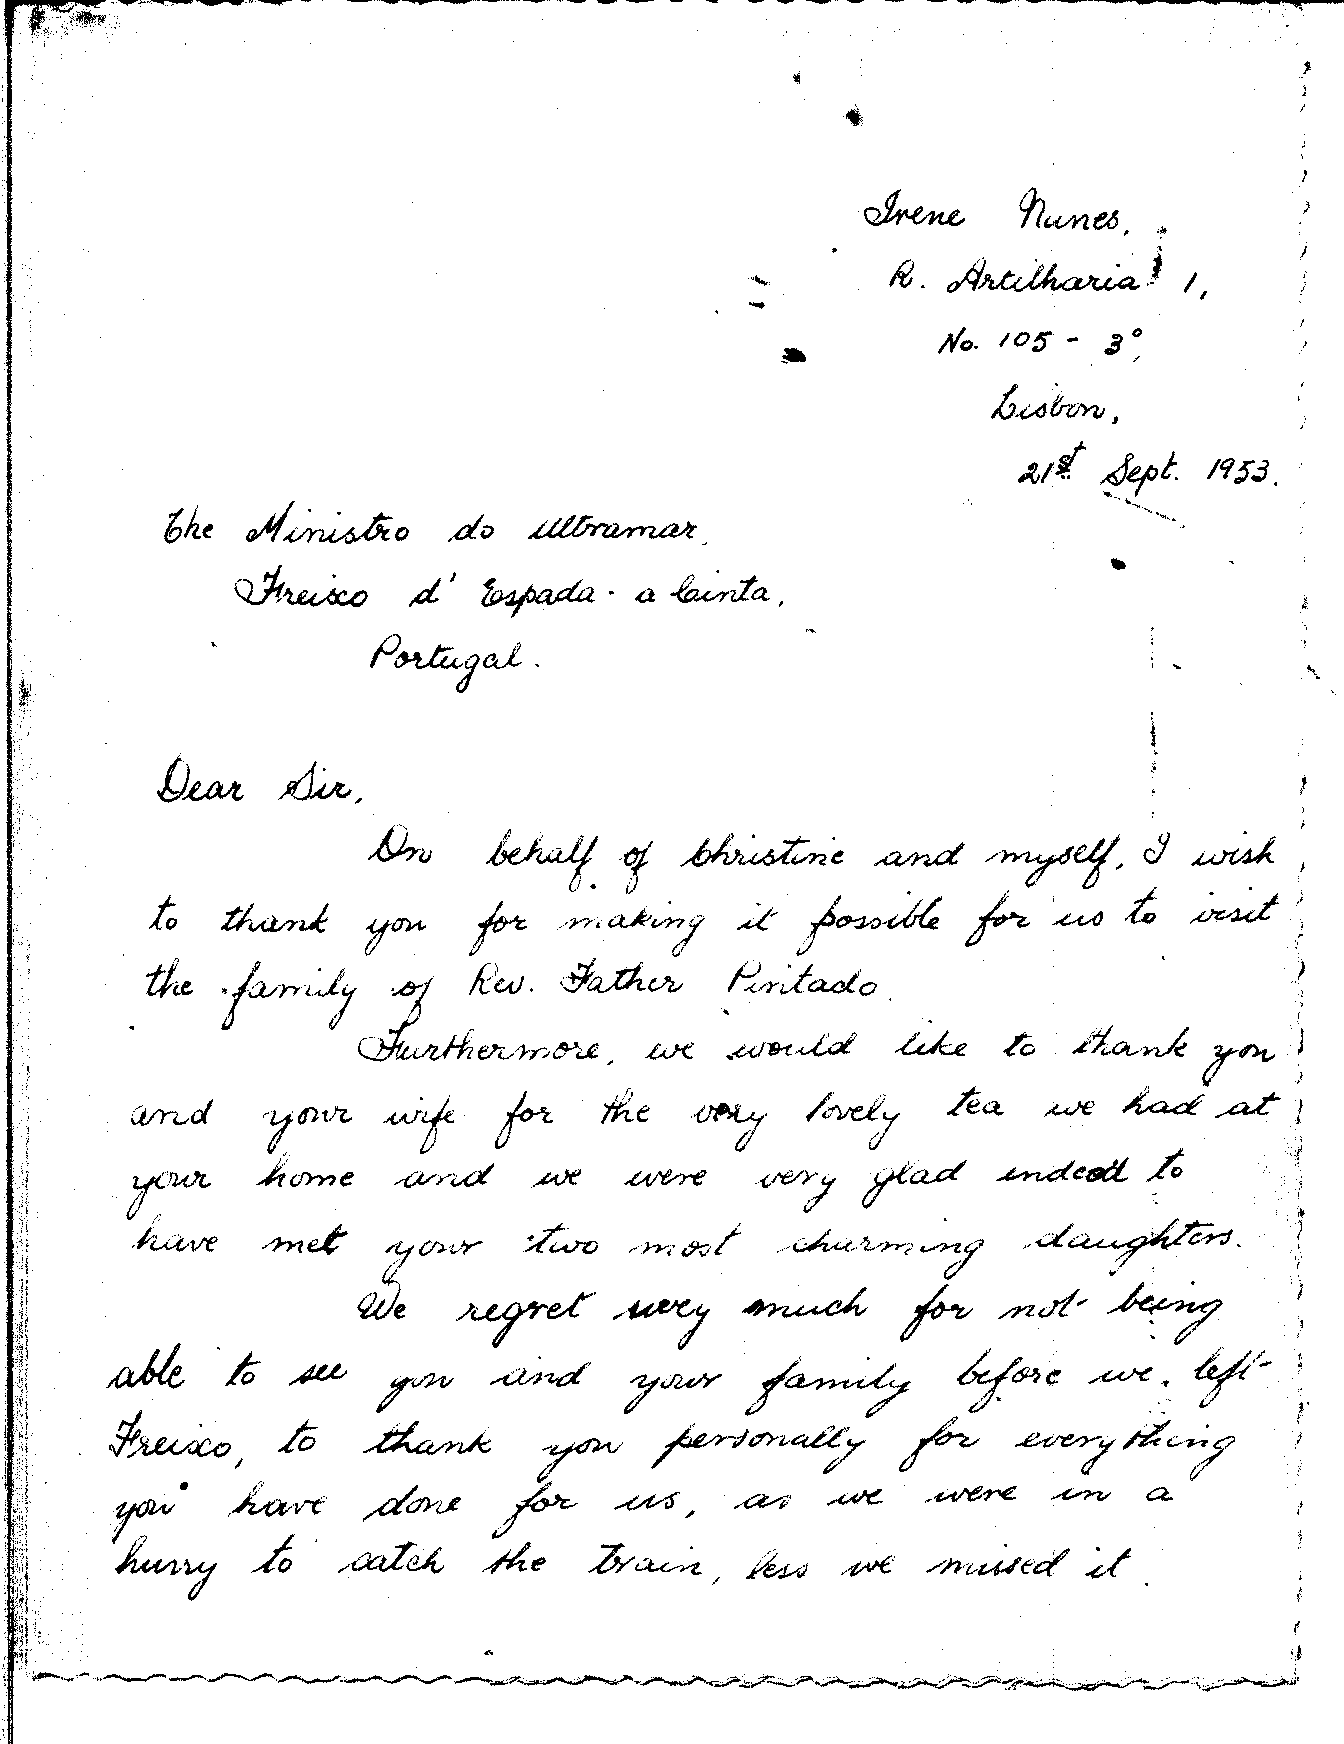 Irene Nunes,
R. Artilharia 1,
No. 105 - 3º,
Lisbon,
21st Sept. 1953.
The Ministro do Ultramar,
Freixo d' Espada - a Cinta,
Portugal.
Dear Sir,
On behalf of Christine and myself, I wish
to thank you for making it possible for us to visit
the family of Rev. Father Pintado.
Furthermore, we would like to thank you
and your wife for the very lovely tea we had at
your home and we were very glad indeed to
have met your two most charming daughters.
We regret very much for not being
able to see you and your family before we left
Freixo, to thank you personally for everything
you have done for us, as we were in a
hurry to catch the train, less we missed it.